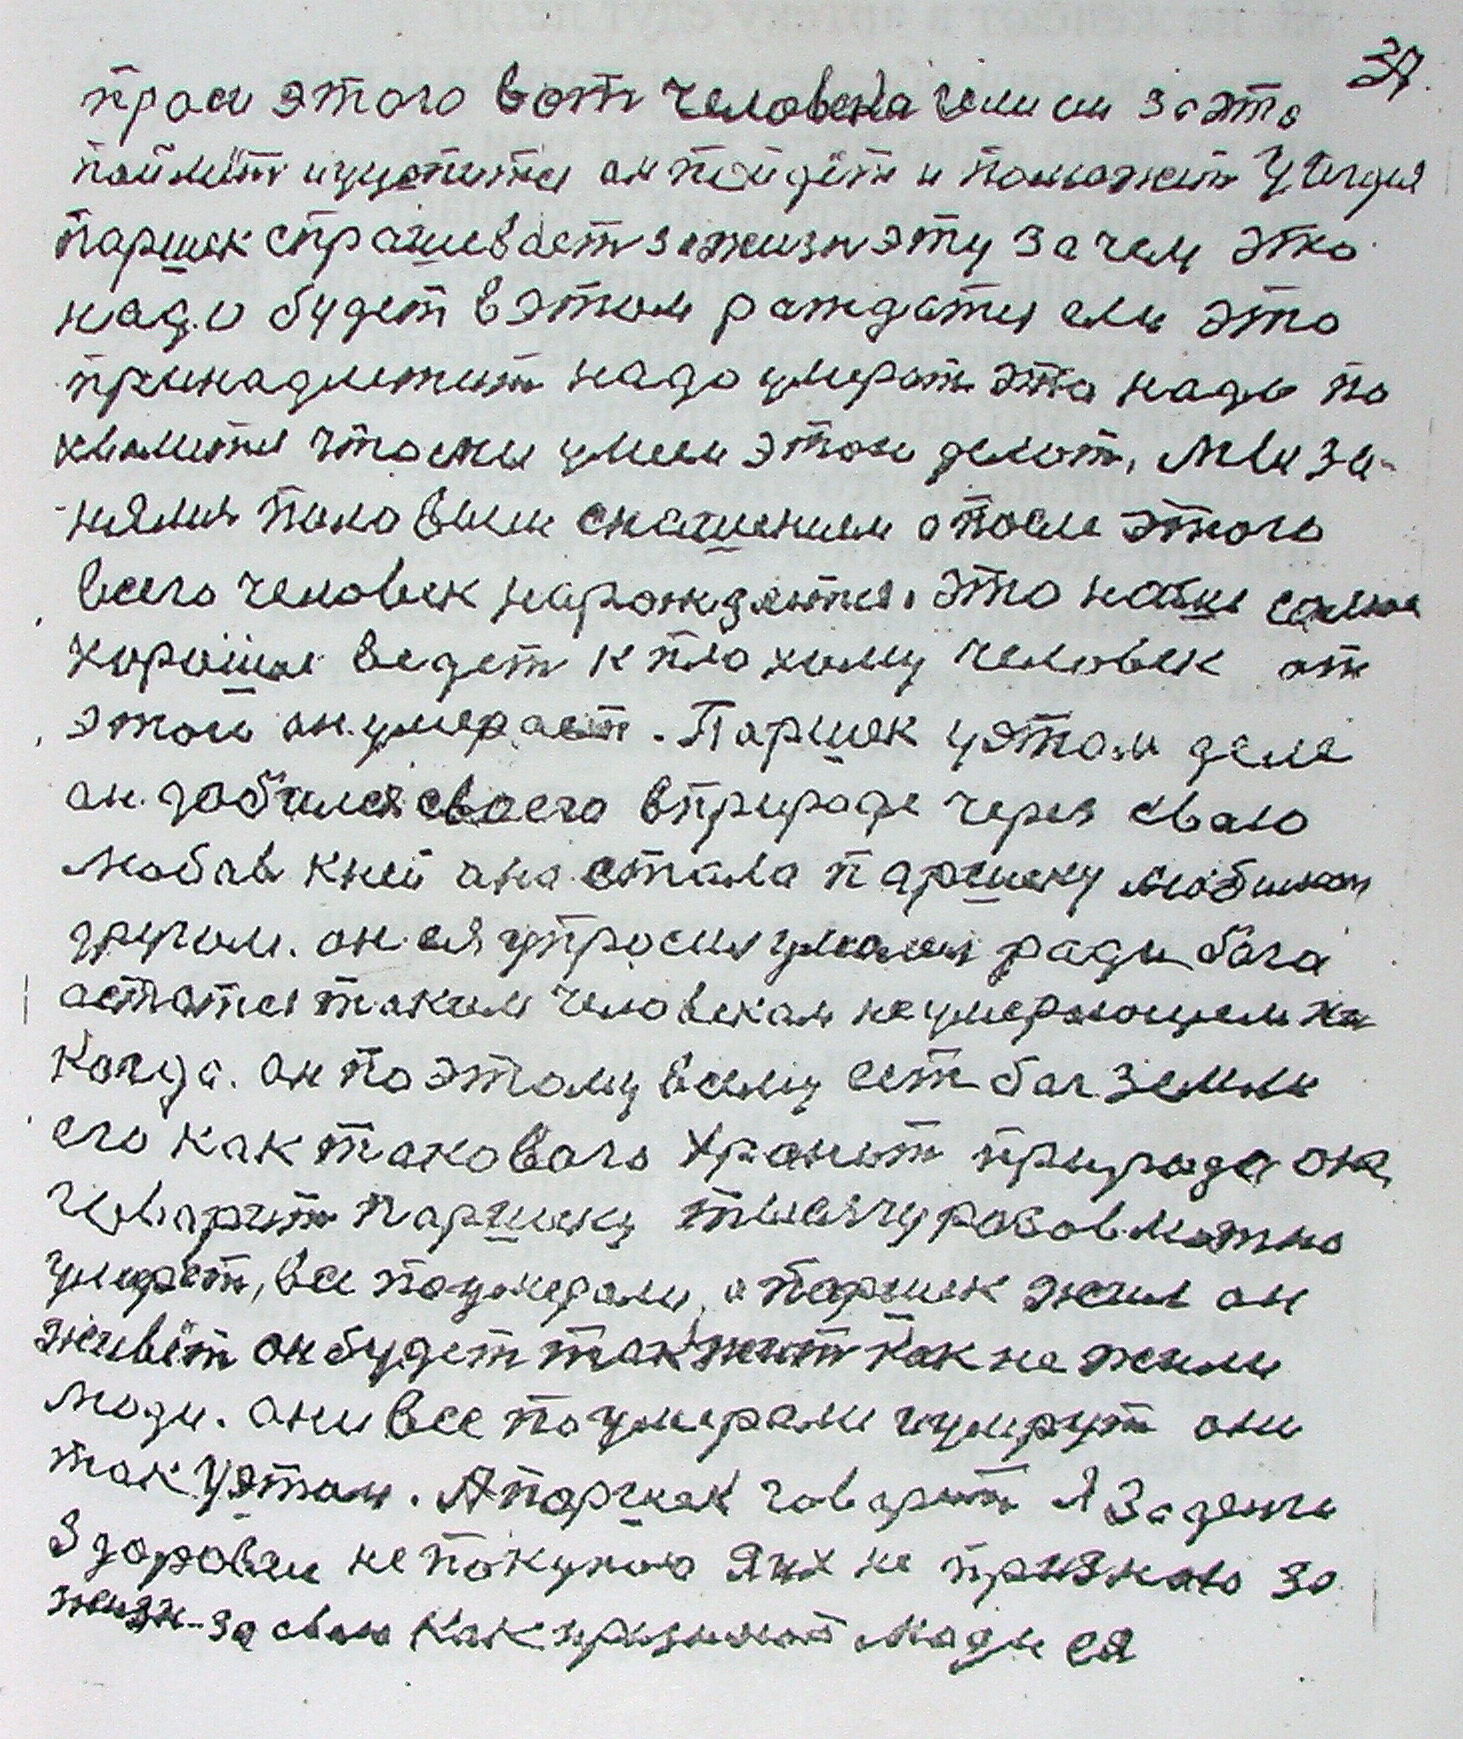 37.
прося этого вот человека если он за это
поймёт и уцепится он пойдёт и поможет
паршек спрашевает за жизн эту зачем это
надо будет в этом раждатся ели это
принадлежит надо умерат это надо по
хвалится что они умели этои делот, Мы за-
-нялис половым снашением а после этого
всего человек нарождяится, это наше самое
хорошее ведет к плохому человек от
этои он умерает. Паршек у этом деле
он добился своего в природе через сваю
любов к ней она стала паршеку любимом
другом. он ея упросил умолил ради бога
астатся таким человекам не умерающем не
когда. он по этому всему ест бог земли
его как таковова хранит природа она,
говарит паршеку тысячу разов можно
умерет, все поумерали, а паршек жил он
живёт он будет так жит как не жили
люди. они все поумерали и умрут они
так у этом. А паршек говарит Я за денги
здоровие не покупаю Я их не признаю за
жизн за сваю как признают люди ея